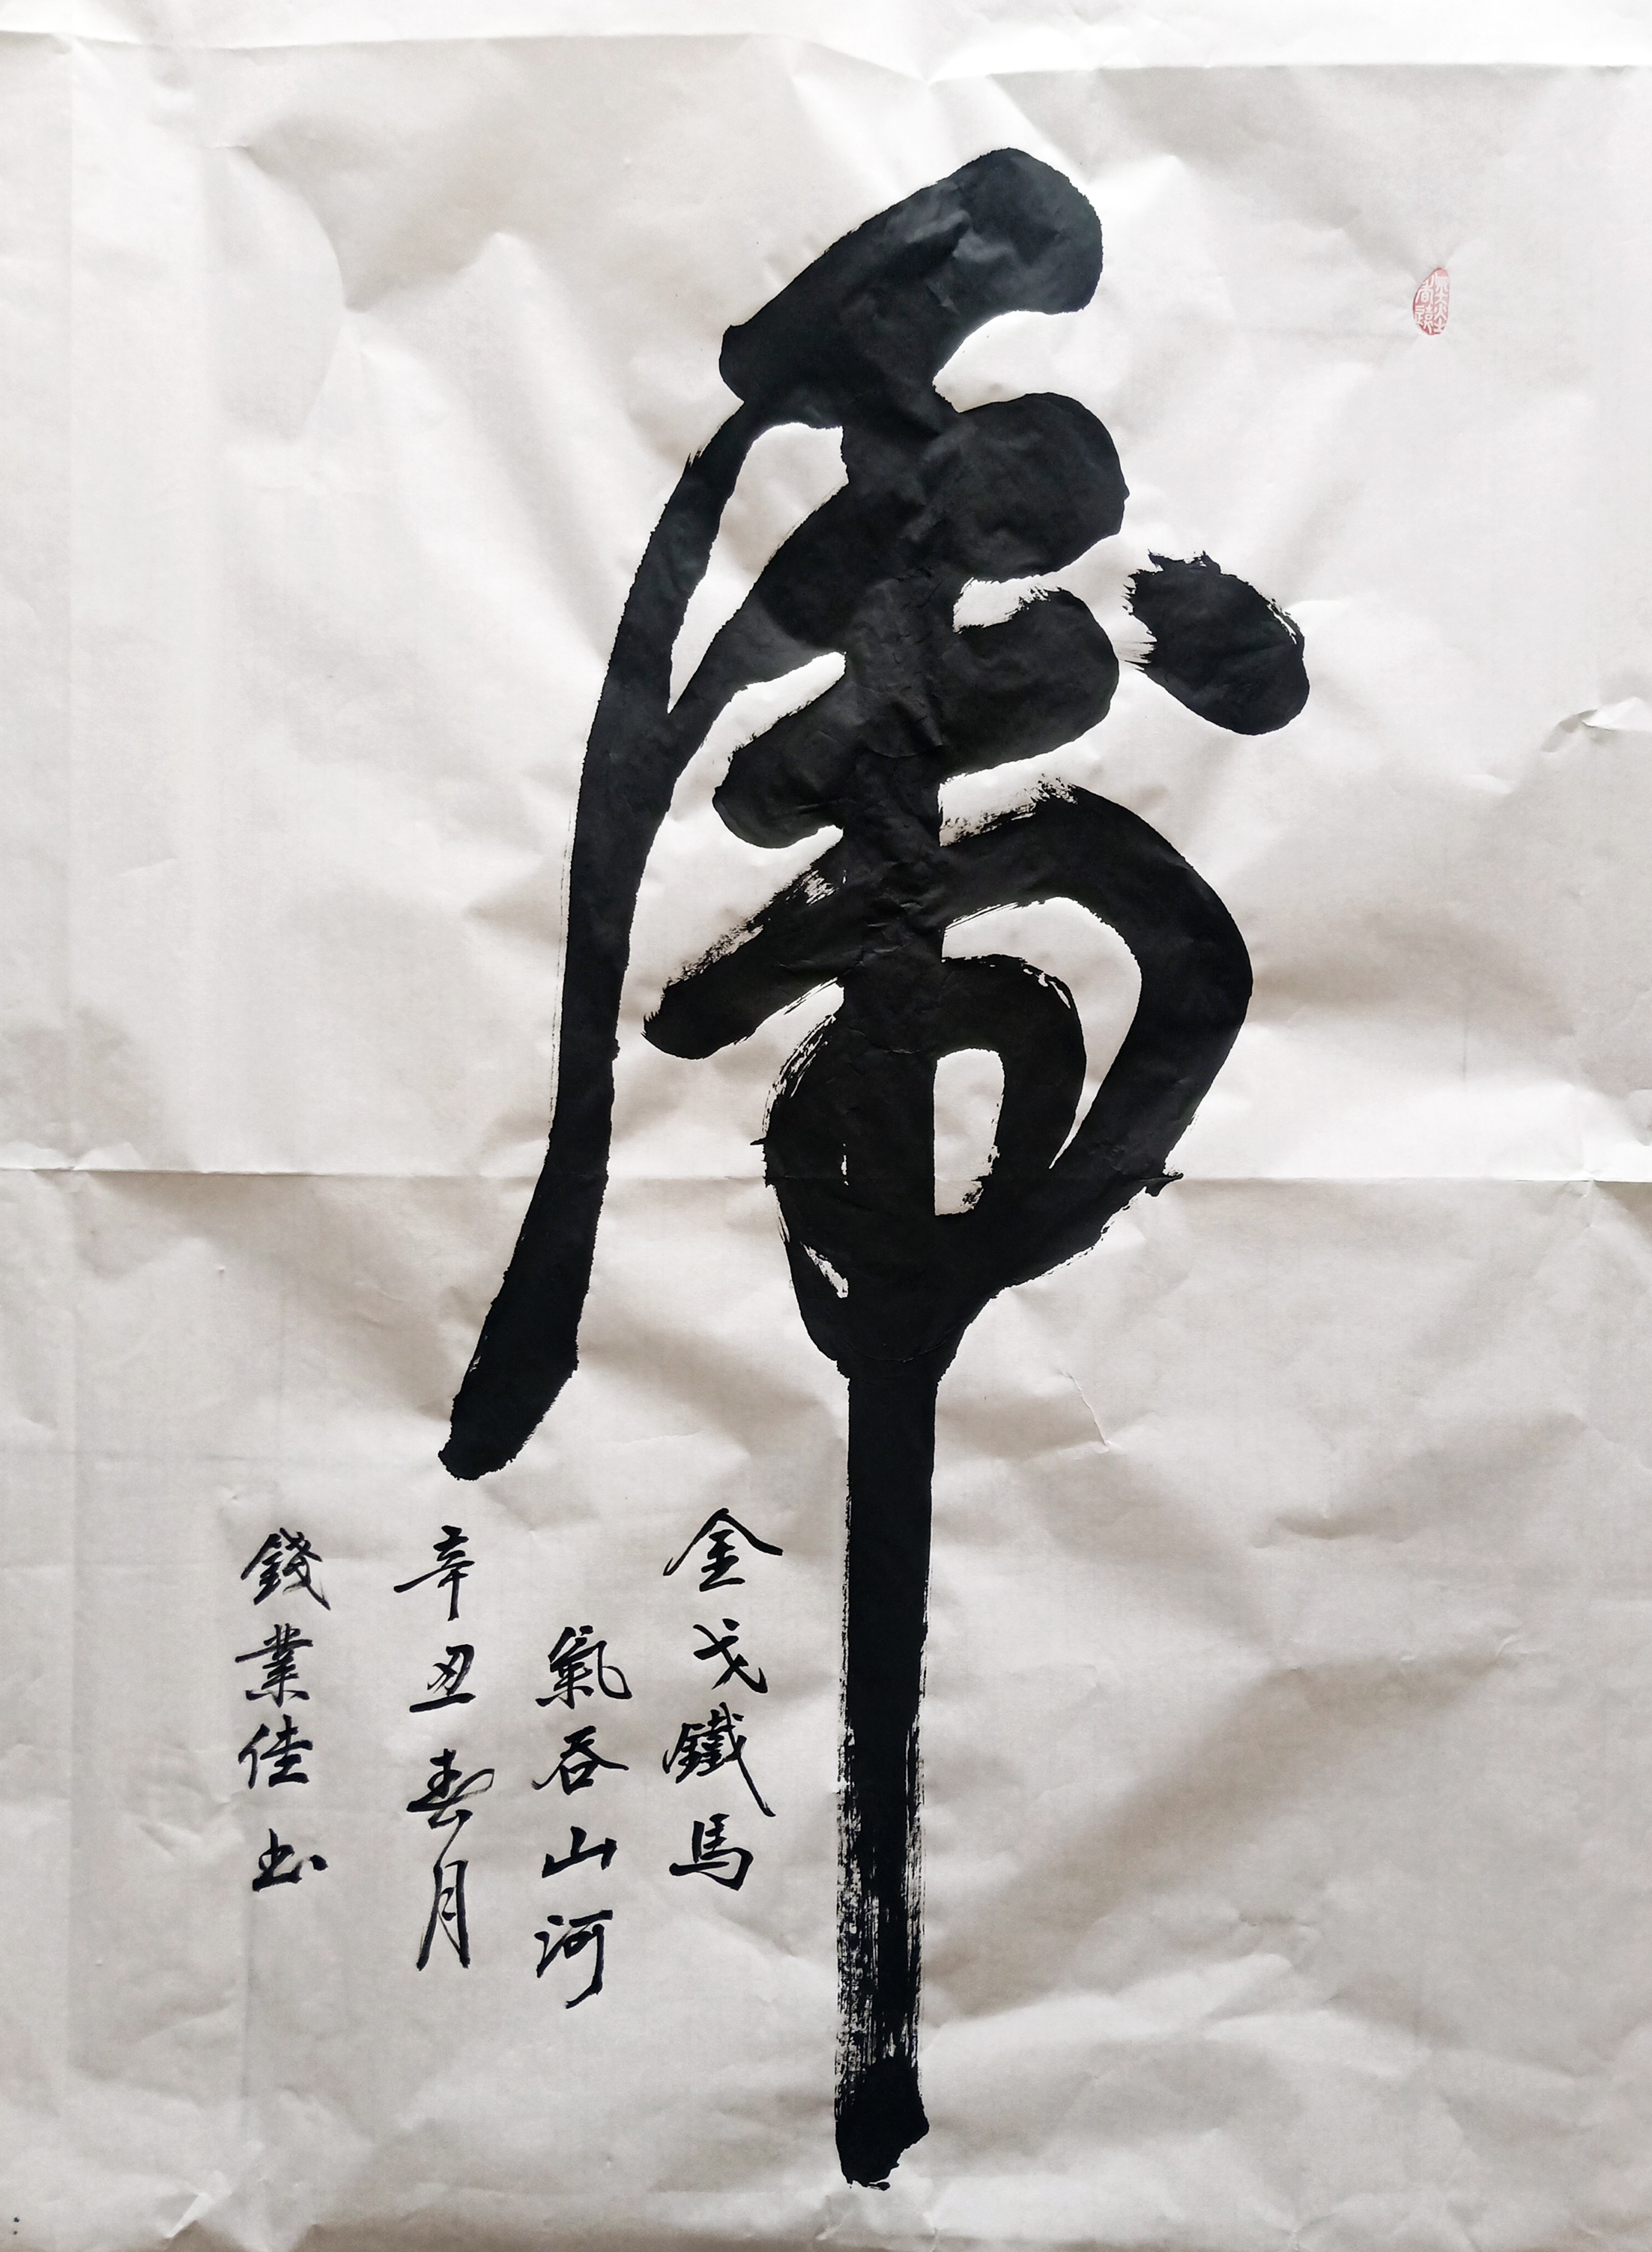 虎
金戈鐵馬
氣吞山河
辛丑春月
錢業佳书